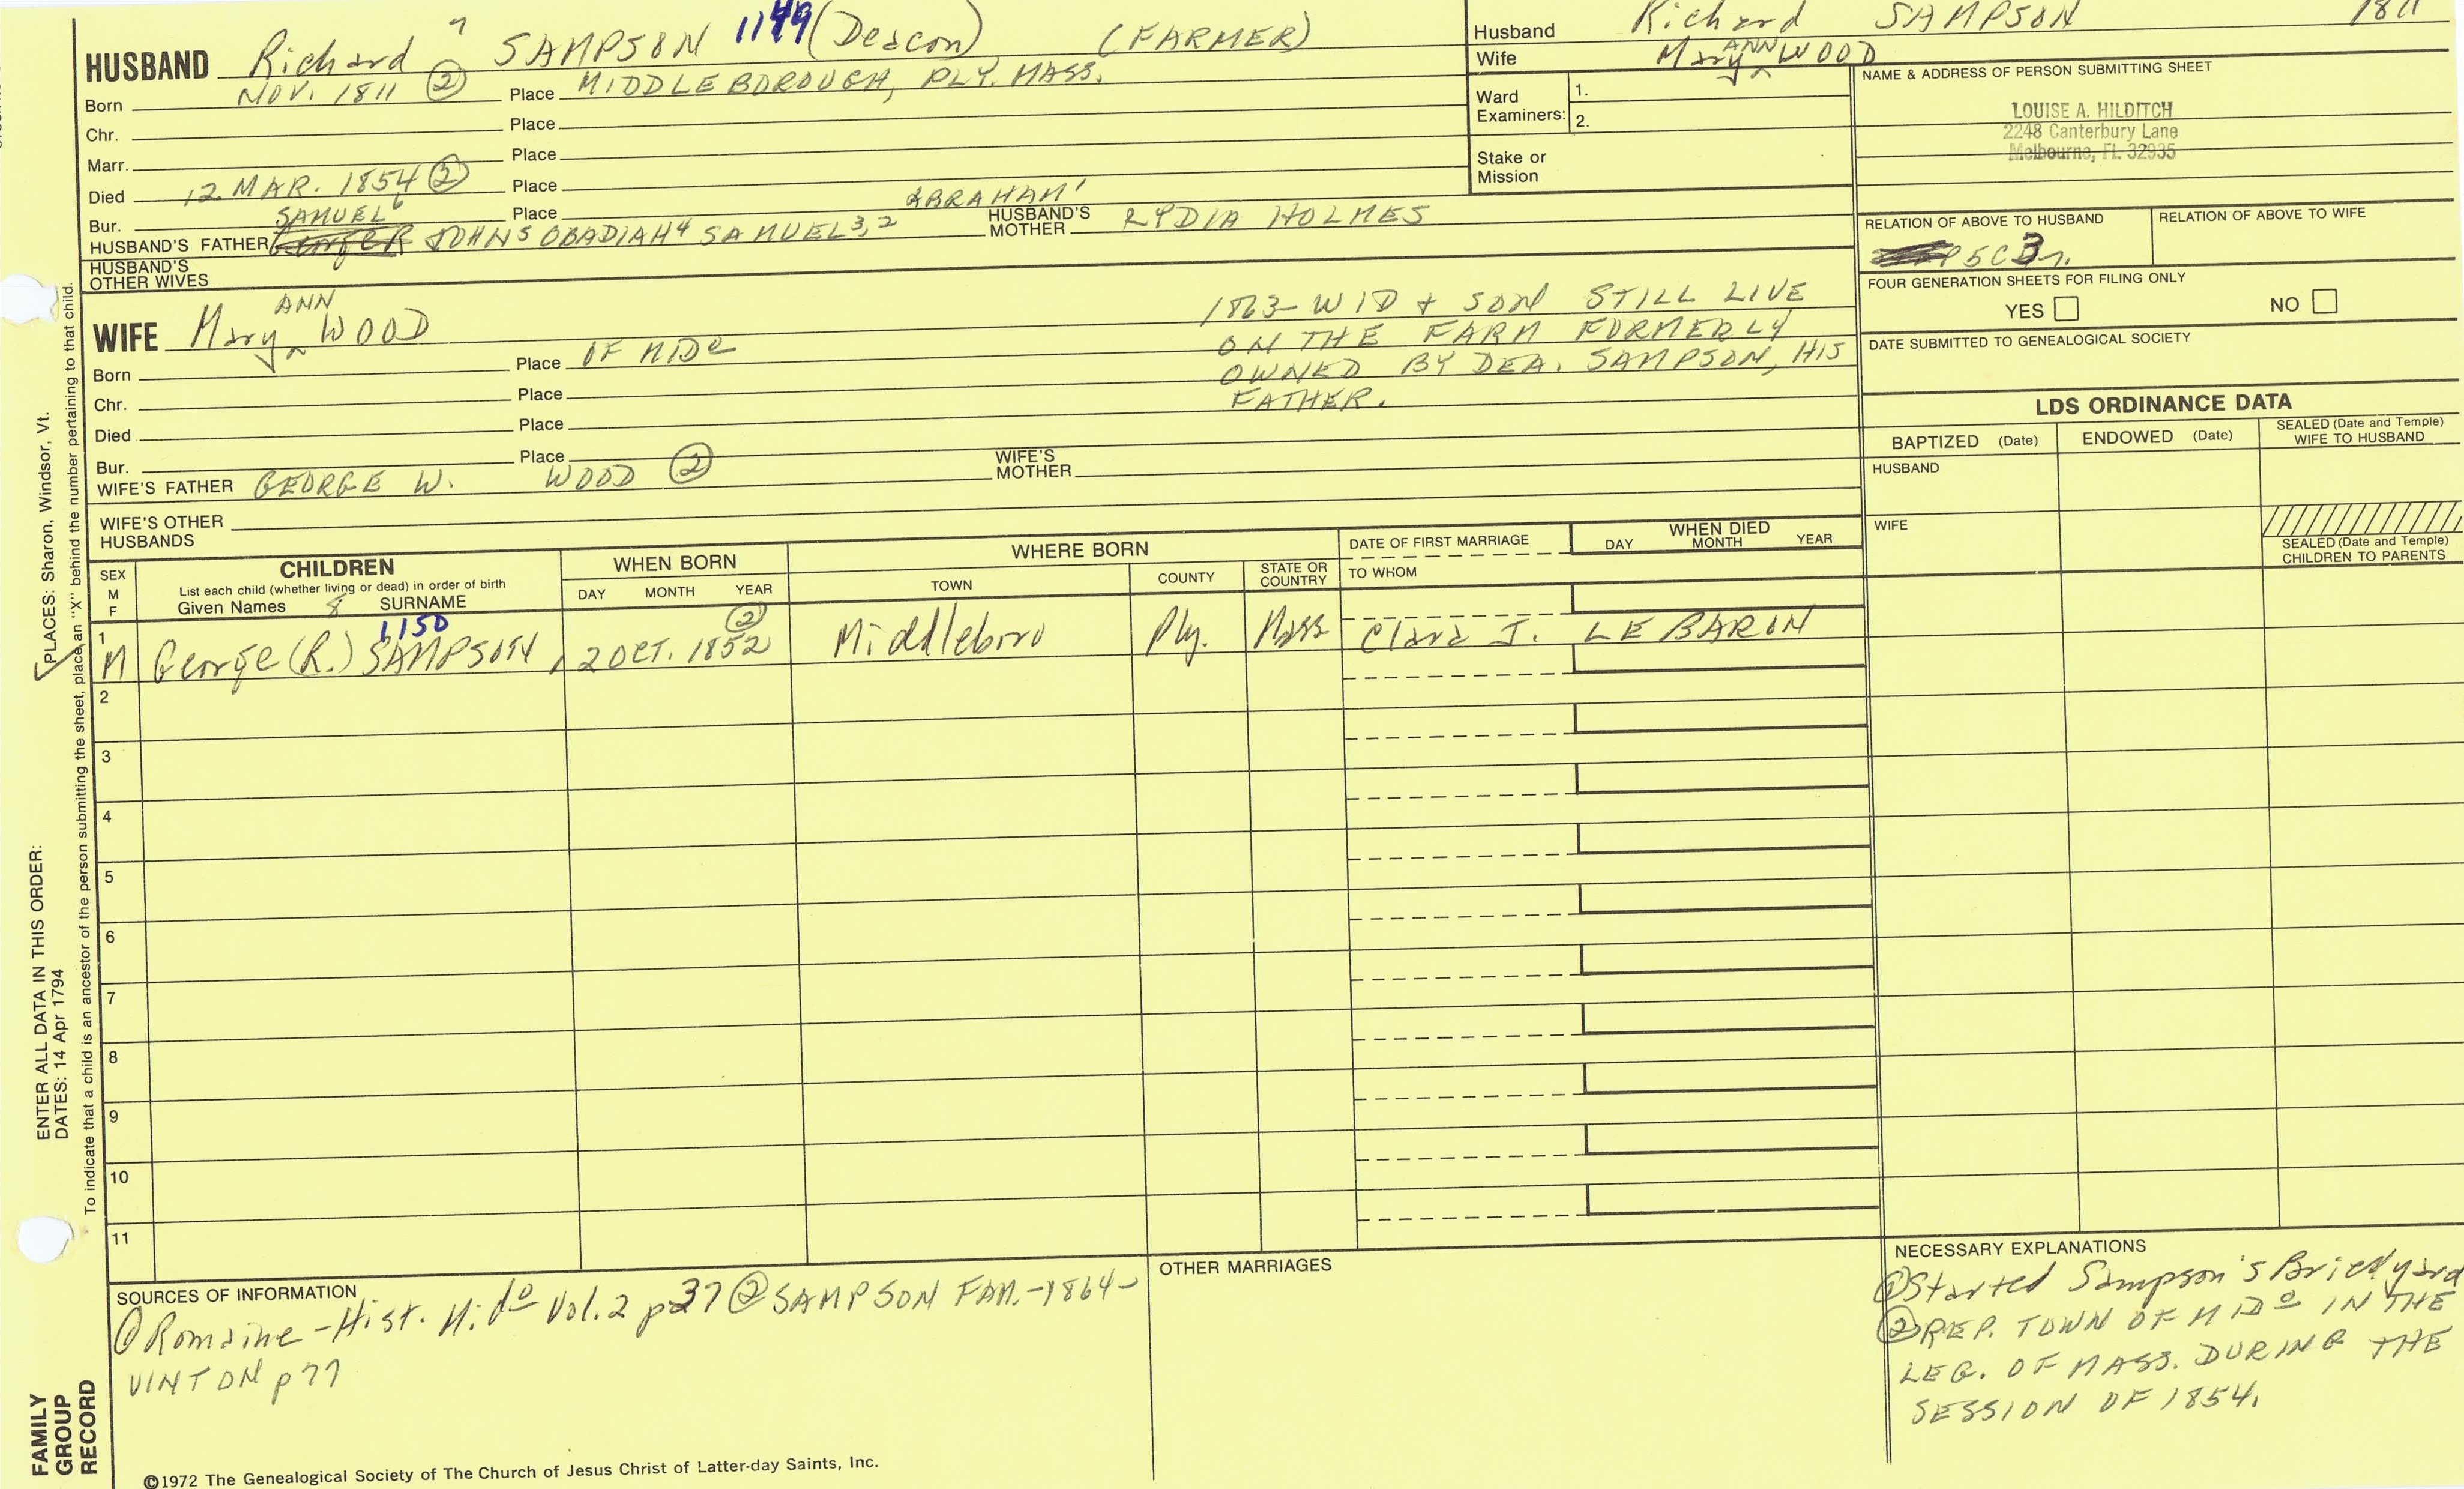 HUSBAND Richard 7 SAMPSON 1149 (Deacon) (FARMER)
Born NOV. 1811 ② Place MIDDLEBOROUGH, PLY. MASS.
Chr. Place
Marr. Place
Died 12 MAR. 1854 ② Place
Bur. Place
SAMUEL 6 ABRAHAM 1
HUSBAND'S FATHER JOHN 5 OBADIAH 4 SAMUEL 3,2 HUSBAND'S MOTHER LYDIA HOLMES
HUSBAND'S OTHER WIVES
Husband Richard SAMPSON 1811
Wife Mary ANN WOOD
Ward Examiners: 1.
2.
Stake or Mission
NAME & ADDRESS OF PERSON SUBMITTING SHEET
LOUISE A. HILDITCH
2248 Canterbury Lane
Melbourne, FL 32935
RELATION OF ABOVE TO HUSBAND
5C3r.
RELATION OF ABOVE TO WIFE
FOUR GENERATION SHEETS FOR FILING ONLY
YES NO
DATE SUBMITTED TO GENEALOGICAL SOCIETY
WIFE Mary ANN WOOD
Born Place OF MIDo
Chr. Place
Died Place
Bur. Place
1863- WID + SON STILL LIVE
ON THE FARM FORMERLY
OWNED BY DEA. SAMPSON, HIS
FATHER.
WIFE'S FATHER GEORGE W. WOOD ② WIFE'S MOTHER
WIFE'S OTHER HUSBANDS
LDS ORDINANCE DATA
BAPTIZED (Date) ENDOWED (Date) SEALED (Date and Temple) WIFE TO HUSBAND
HUSBAND
WIFE
SEALED (Date and Temple) CHILDREN TO PARENTS
SEX M F
CHILDREN
List each child (whether living or dead) in order of birth
Given Names 8 SURNAME
WHEN BORN
DAY MONTH YEAR
WHERE BORN
TOWN COUNTY STATE OR COUNTRY
DATE OF FIRST MARRIAGE
TO WHOM
WHEN DIED
DAY MONTH YEAR
1150 ②
1 M George (R.) SAMPSON 2 OCT. 1852 Middleboro Ply. Mass Clara J. LE BARON
2
3
4
5
6
7
8
9
10
11
SOURCES OF INFORMATION
① Romaine - Hist. Mido Vol. 2 p37 ② SAMPSON FAM. - 1864 -
VINTON p77
OTHER MARRIAGES
NECESSARY EXPLANATIONS
① Started Sampson's Brickyard
② REP. TOWN OF MIDo IN THE
LEG. OF MASS. DURING THE
SESSION OF 1854.
©1972 The Genealogical Society of The Church of Jesus Christ of Latter-day Saints, Inc.
FAMILY
GROUP
RECORD
ENTER ALL DATA IN THIS ORDER:
DATES: 14 Apr 1794
PLACES: Sharon, Windsor, Vt.
To indicate that a child is an ancestor of the person submitting the sheet, place an "X" behind the number pertaining to that child.